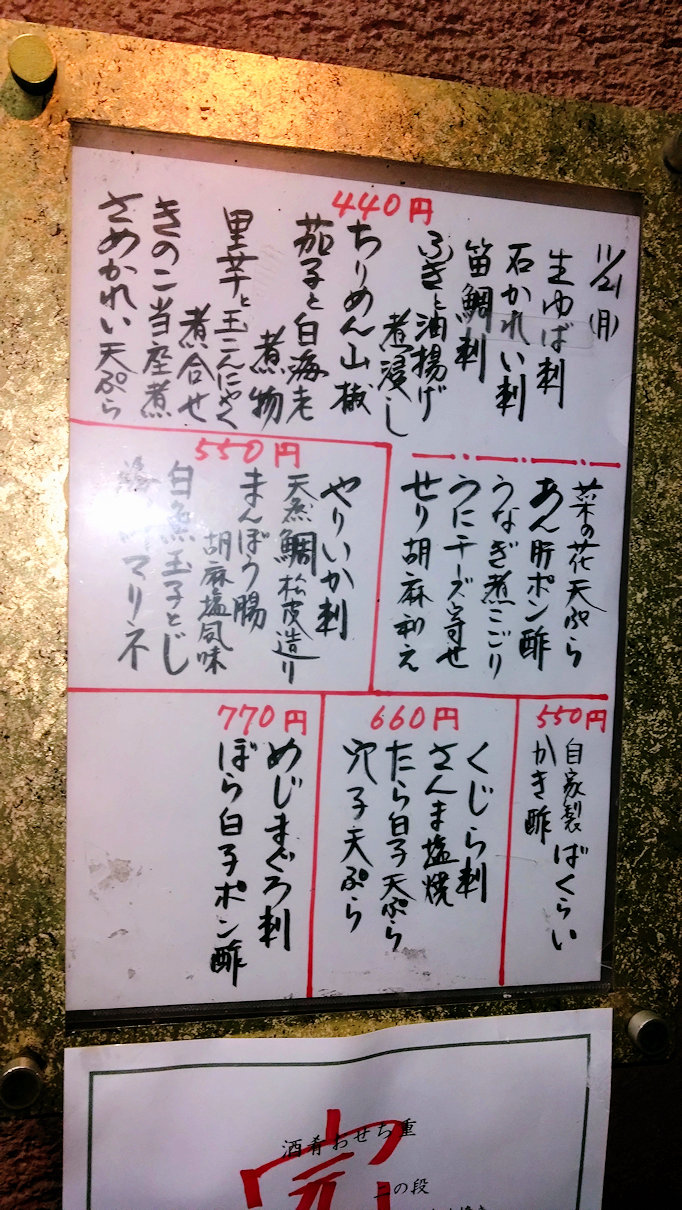 11/21(月)
440円
生ゆば刺
石かれい刺
笛鯛刺
ふきと油揚げ
煮浸し
ちりめん山椒
茄子と白海老
煮物
里芋と玉こんにゃく
煮合せ
きのこ当座煮
さめかれい天ぷら
菜の花天ぷら
あん肝ポン酢
うなぎ煮こごり
うにチーズ寄せ
せり胡麻和え
550円
やりいか刺
天然鯛松皮造り
まんぼう腸
胡麻塩風味
白魚玉子とじ
マリネ
550円
自家製ばくらい
かき酢
660円
くじら刺
さんま塩焼
たら白子天ぷら
穴子天ぷら
770円
めじまぐろ刺
ぼら白子ポン酢
酒肴おせち重
二の段